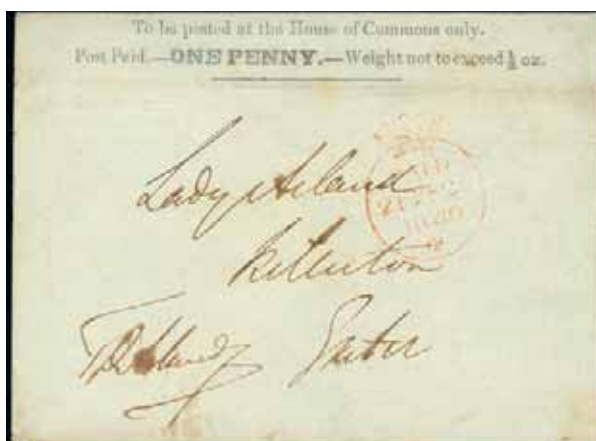 To be posted at the House of Commons only.
Post Paid.—ONE PENNY.—Weight not to exceed ½ oz.
Lady Acland
Killerton
Exeter
PAID
1840